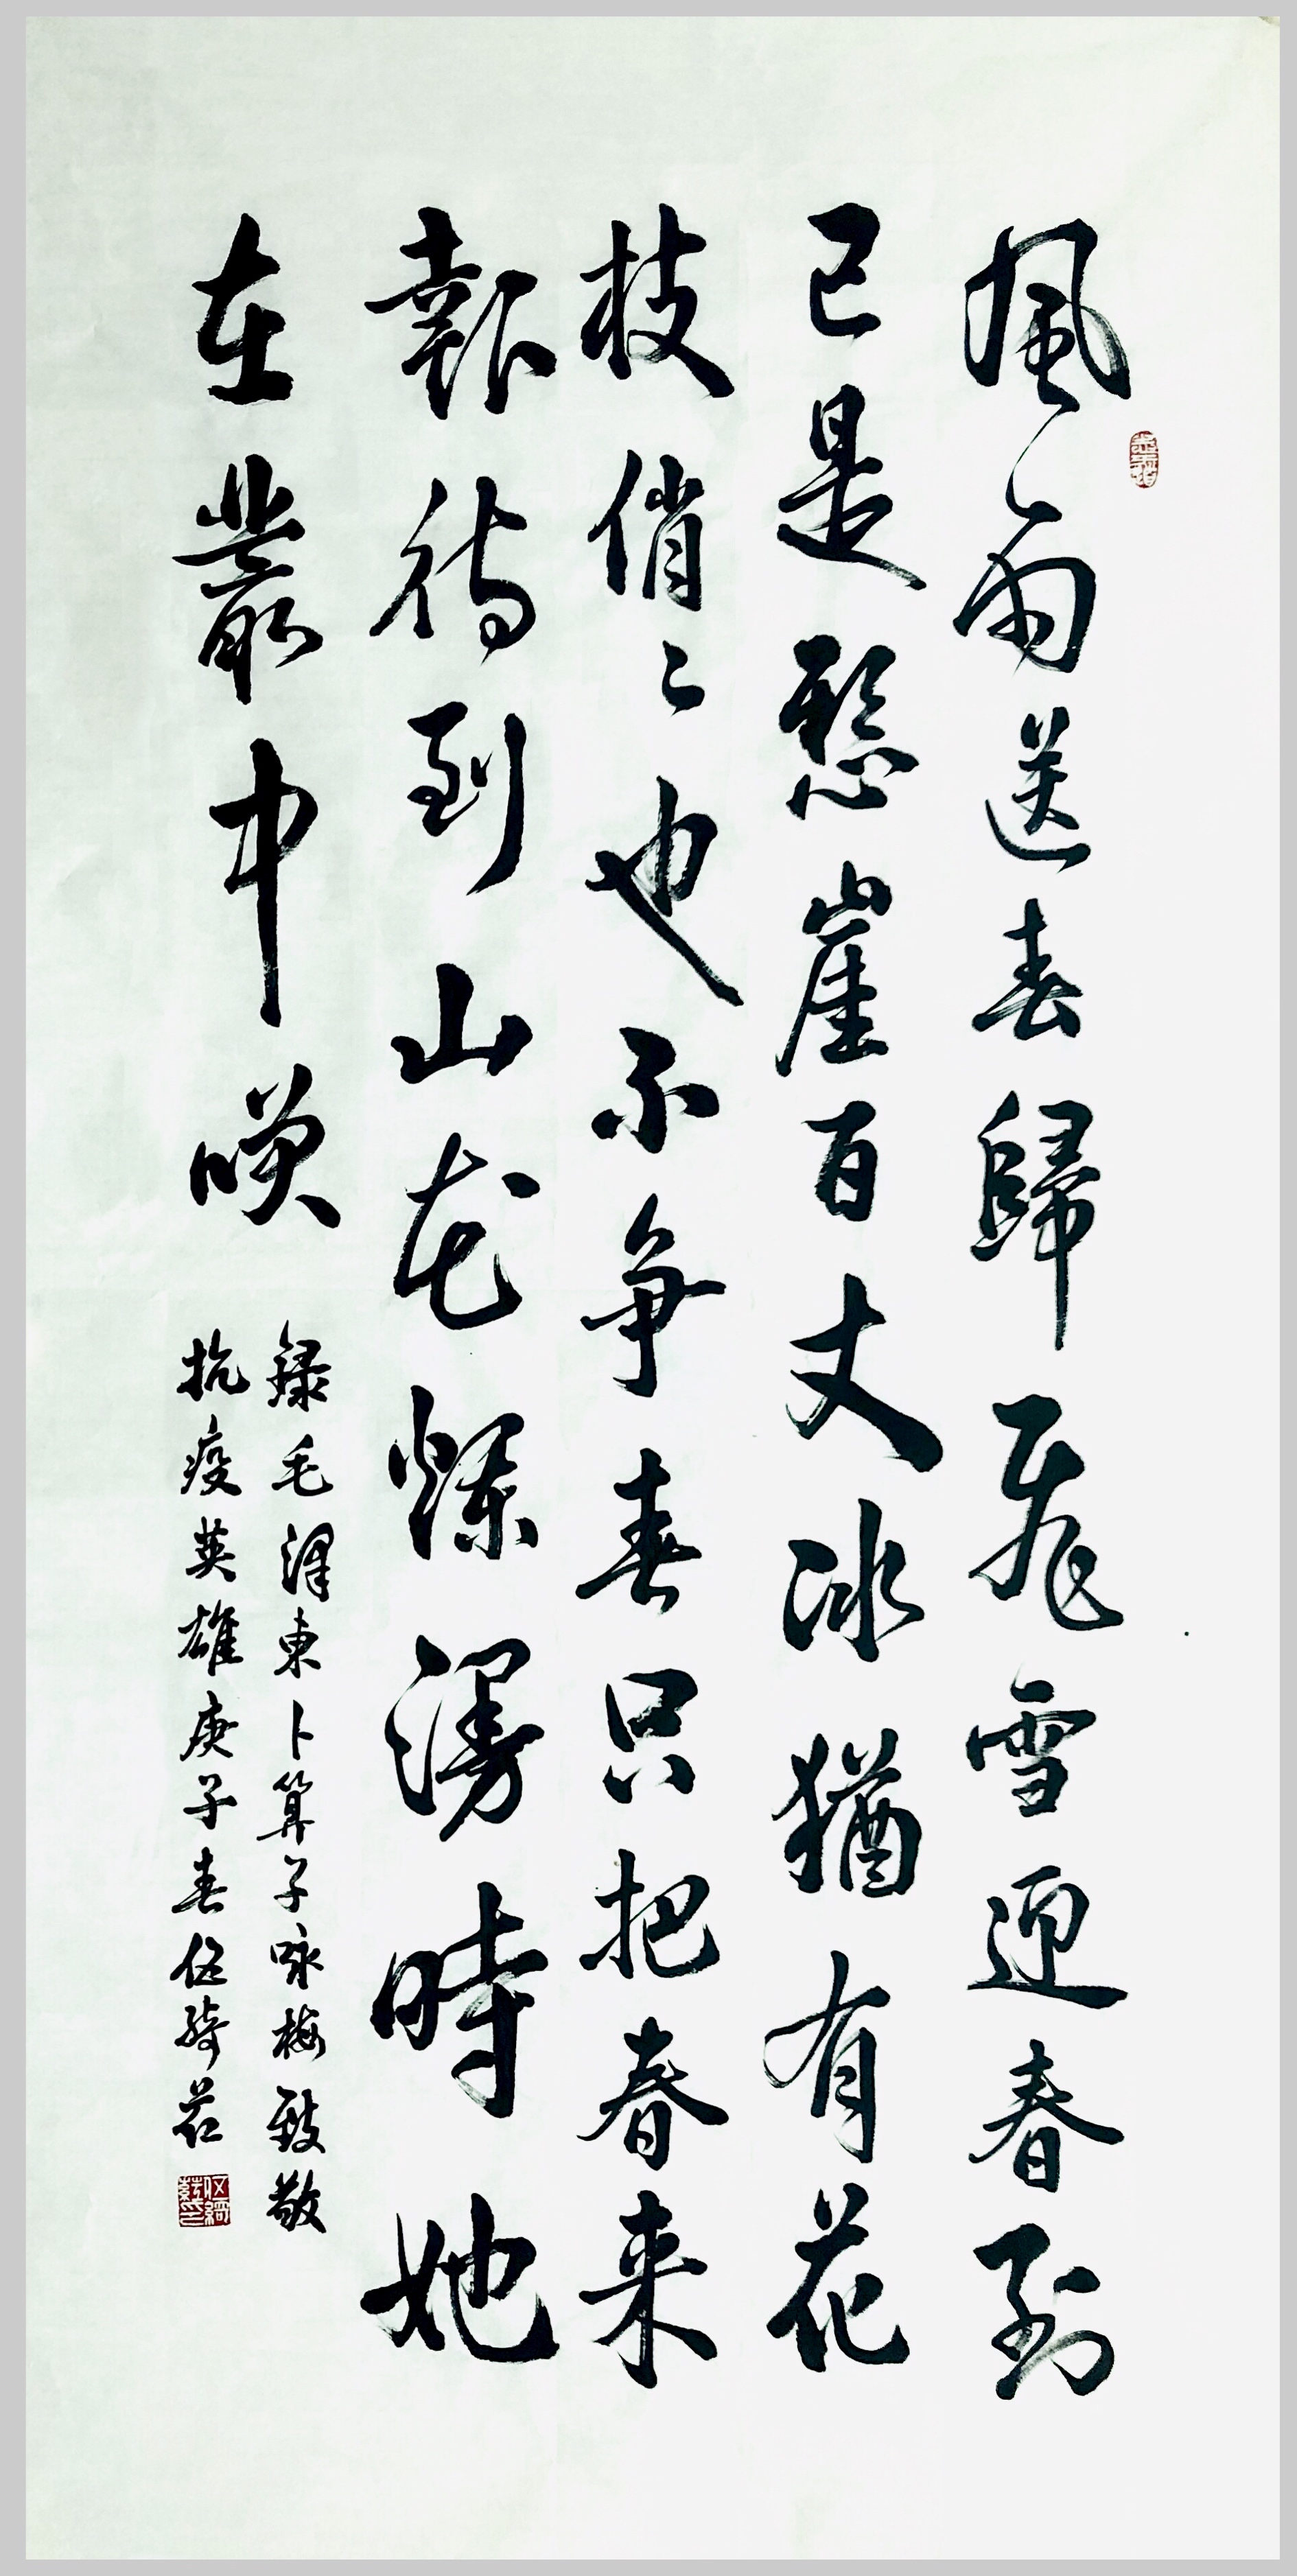 風雨送春歸飛雪迎春到
已是懸崖百丈冰猶有花
枝俏々也不争春只把春来
報待到山花爛漫時她
在叢中咲
錄毛澤東卜算子咏梅致敬
抗疫英雄庚子春伍綺芯